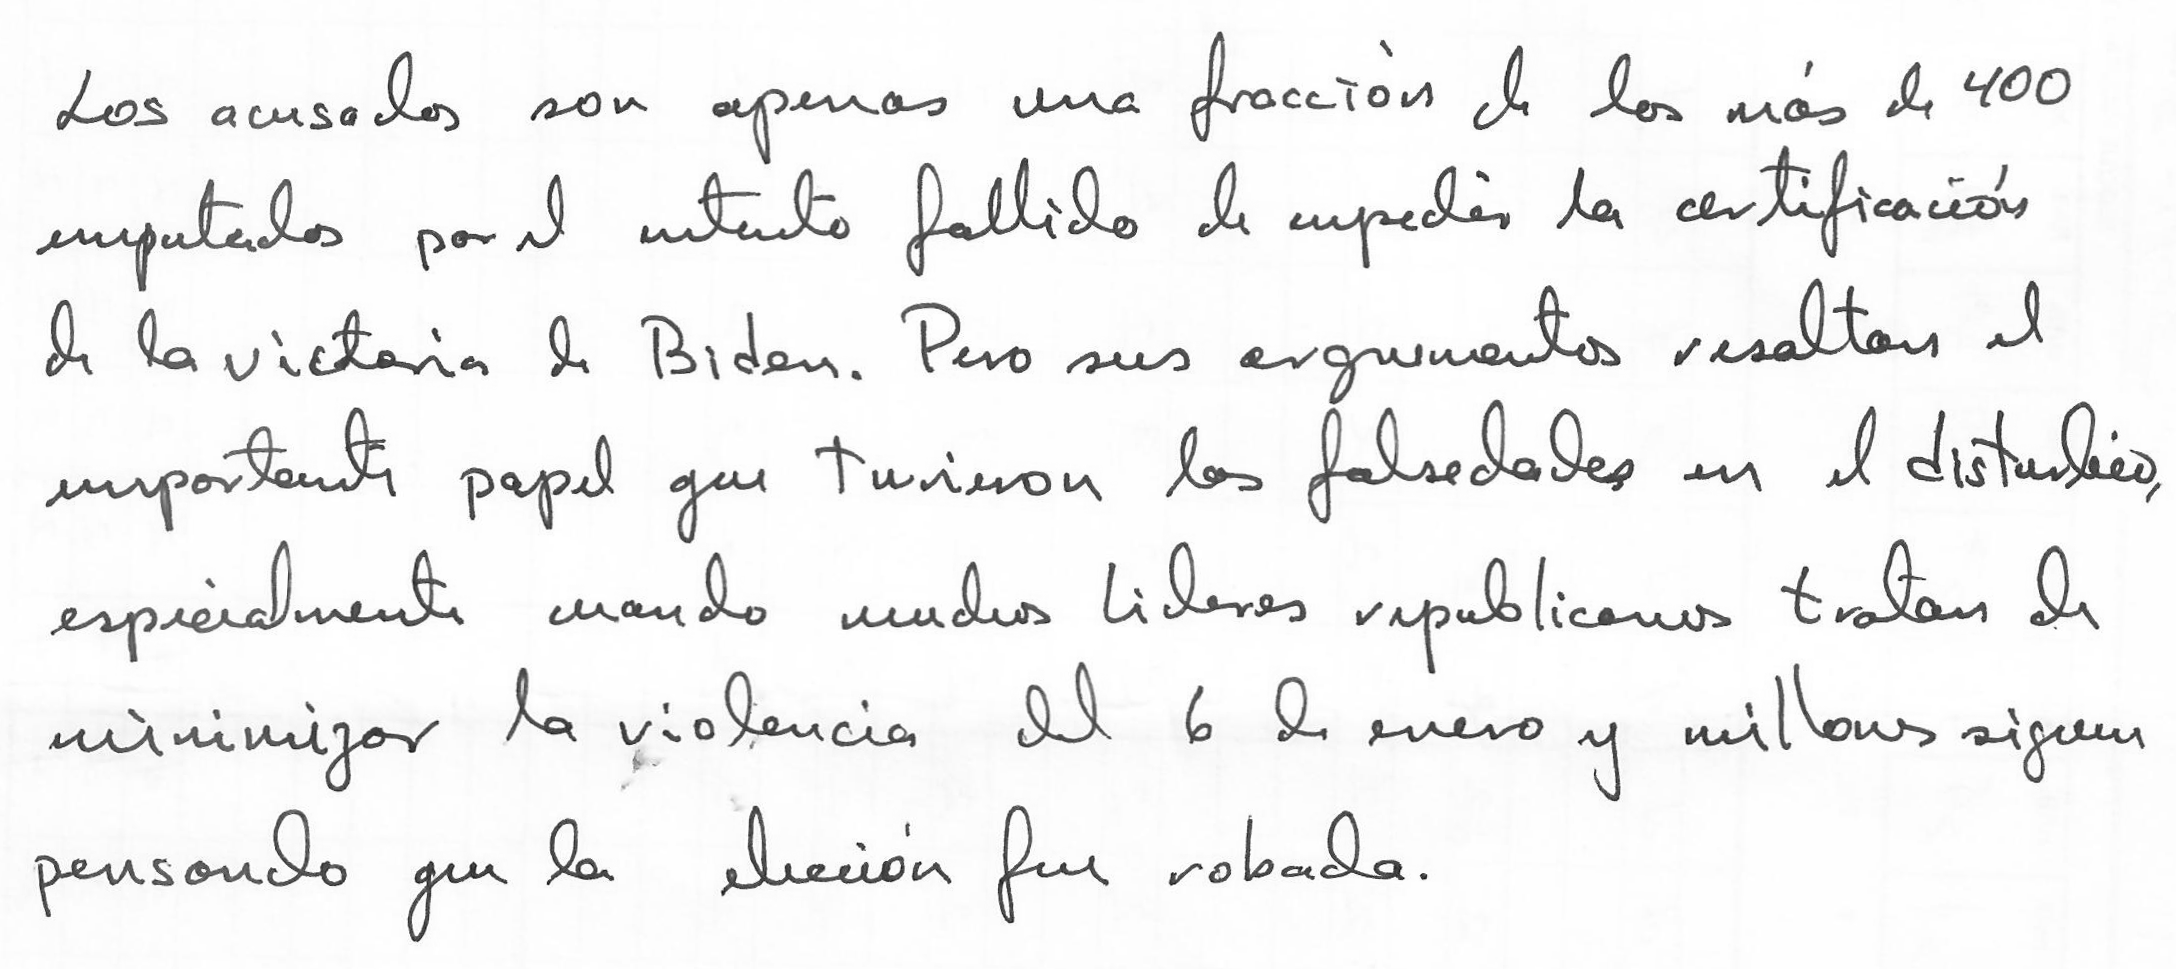 Los acusados son apenas una fracción de los más de 400
imputados por el intento fallido de impedir la certificación
de la victoria de Biden. Pero sus argumentos resaltan el
importante papel que tuvieron las falsedades en el disturbio,
especialmente cuando muchos líderes republicanos tratan de
minimizar la violencia del 6 de enero y millones siguen
pensando que la elección fue robada.